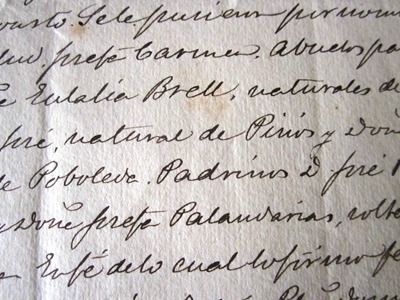 Se le pusieron por nom
Josefa Carmen. Abuelos pa
Eulalia Brell, naturales de
José, natural de Pinós y Doñ
de Poboleda. Padrinos D. José
y Doñª Josefa Palandarias, solte
En fé de lo cual lo firmo